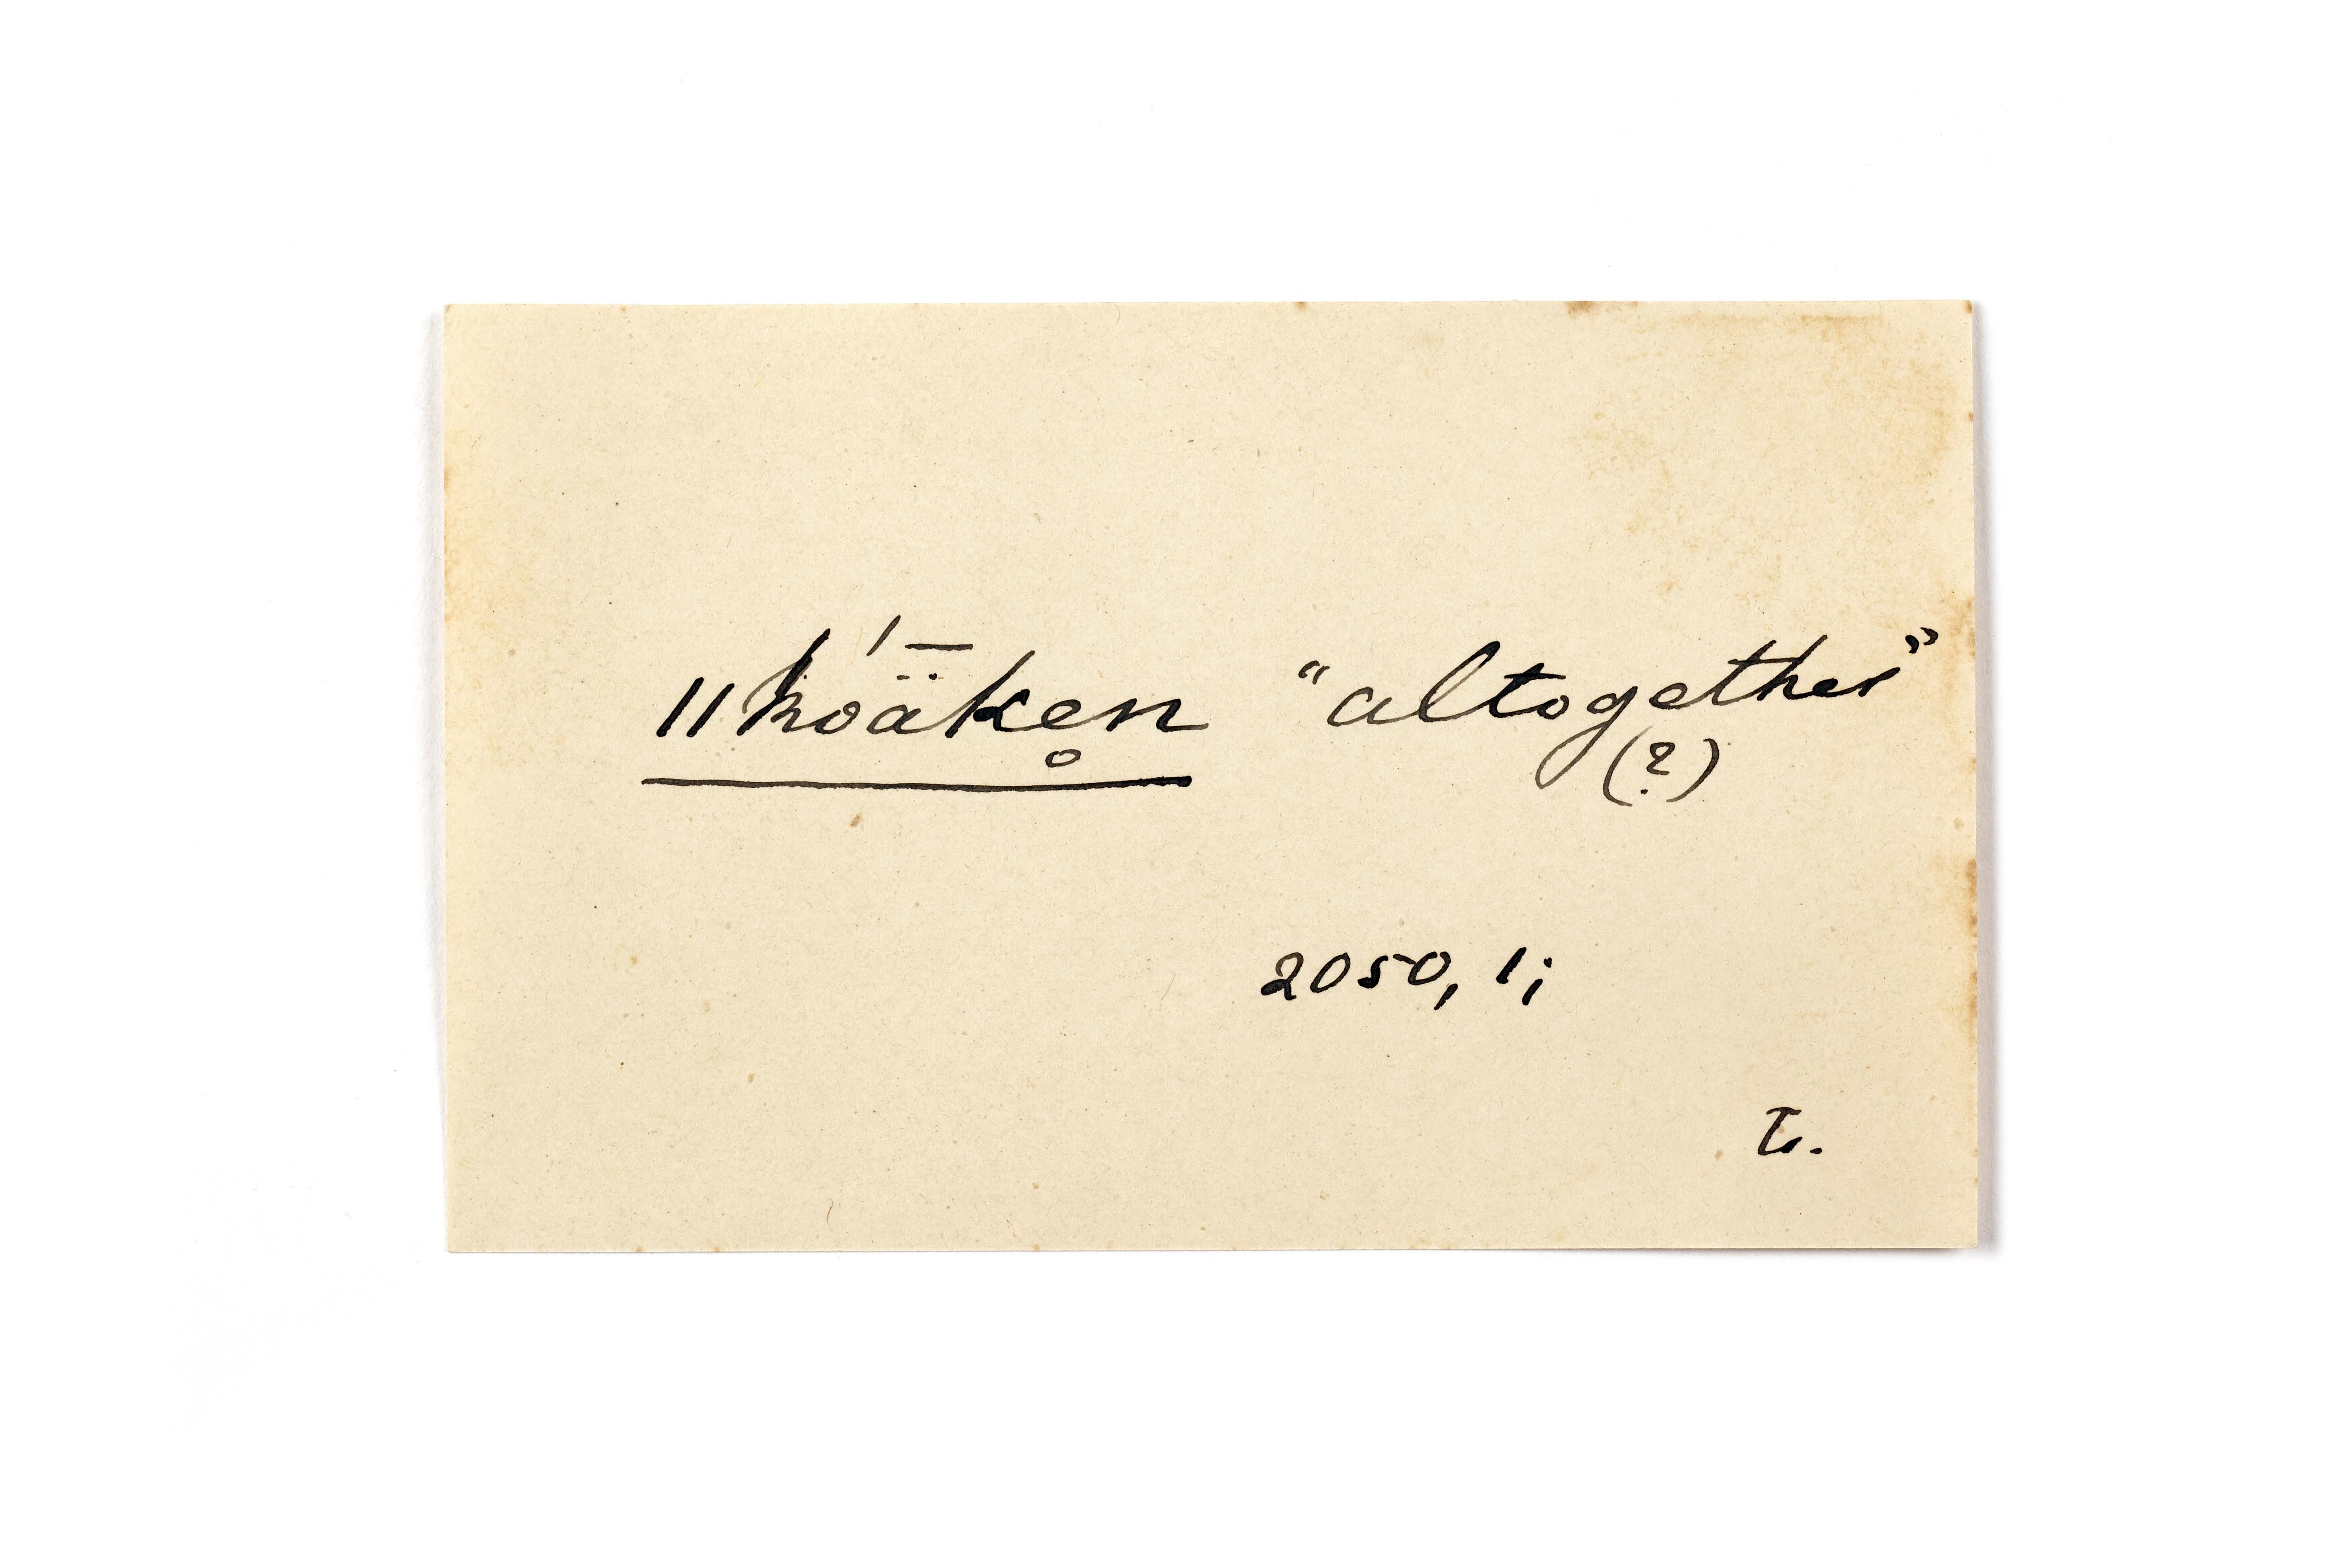 ǁhóǟken̥ "altogether"
(?)
2050, 1;